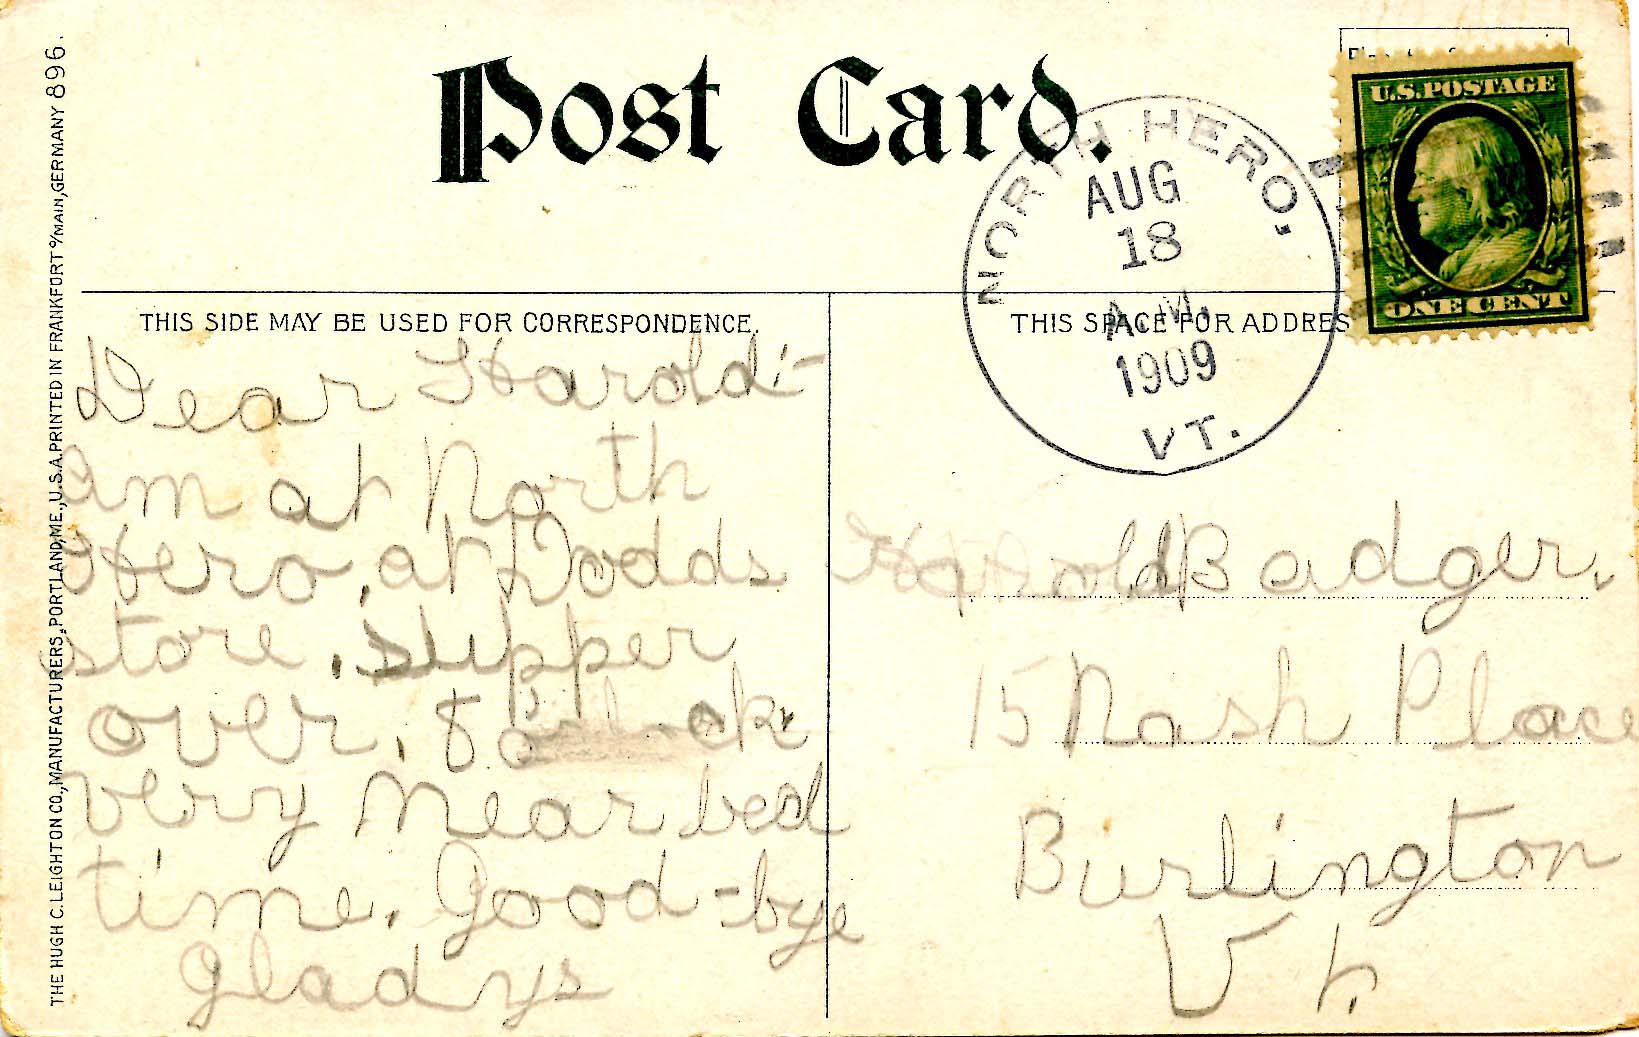 Post Card.
NORTH HERO,
AUG
18
A.M.
1909
VT.
U.S. POSTAGE
ONE CENT
THIS SIDE MAY BE USED FOR CORRESPONDENCE.
THIS SPACE FOR ADDRES
THE HUGH C. LEIGHTON CO., MANUFACTURERS, PORTLAND, ME., U.S.A. PRINTED IN FRANKFORT o/MAIN, GERMANY 896.
Dear Harold:-
Am at North
Hero, at Dodds
store, supper
over, 8 o'clock
very near bed
time. Good-bye
Gladys
Harold Badger,
15 Nash Place
Burlington
Vt.